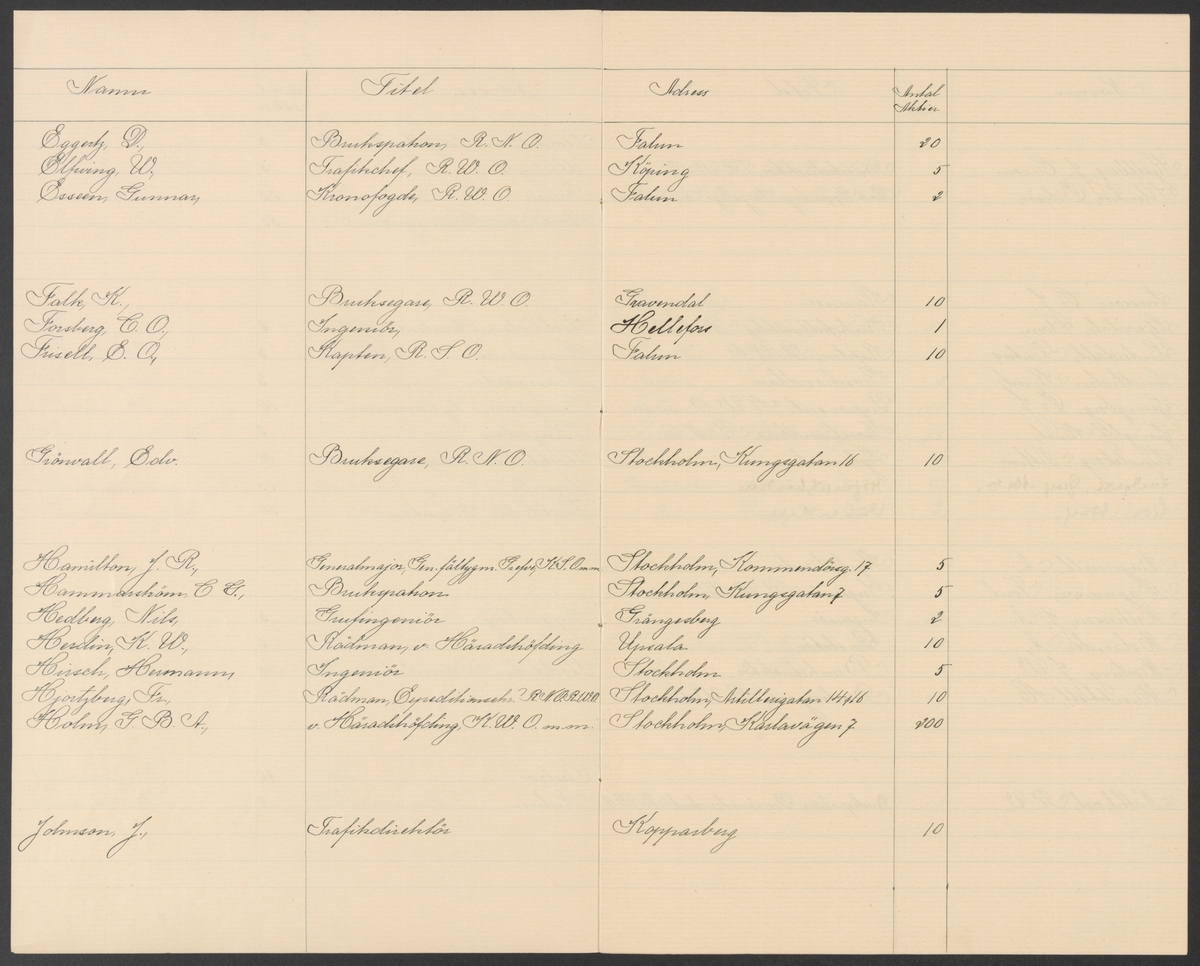 Namn Titel Adress Antal Aktier
Eggertz, D., Brukspatron, R. N. O. Falun 20
Elfving, W., Trafikchef, R. W. O. Köping 5
Esseen, Gunnar, Kronofogde, R. W. O. Falun 2
Falk, K., Bruksegare, R. W. O. Gravendal 10
Forsberg, C. O., Ingeniör, Hellefors 1
Frisell, E. O., Kapten, R. S. O. Falun 10
Grönvall, Edv. Bruksegare, R. N. O. Stockholm, Kungsgatan 16 10
Hamilton, J. R., Generalmajor, Gen. fälttygm. K. S. O. m m Stockholm, Kommendörsg. 17 5
Hammarström C G., Brukspatron Stockholm, Kungsgatan 7 5
Hedberg, Nils, Grufingeniör Grängesberg 2
Herdin, K. W., Rådman, v. Häradshöfding Upsala 10
Hirsch, Hermann, Ingeniör Stockholm 5
Hjortzberg, Fr., Rådman, Expeditionssekr. R. N. O. R. W. O. Stockholm, Artillerigatan 14 & 16 10
Holm, G. B. A., v. Häradshöfding, R. W. O. m. m. Stockholm, Karlavägen 7 200
Johnson, J., Trafikdirektör Kopparberg 10